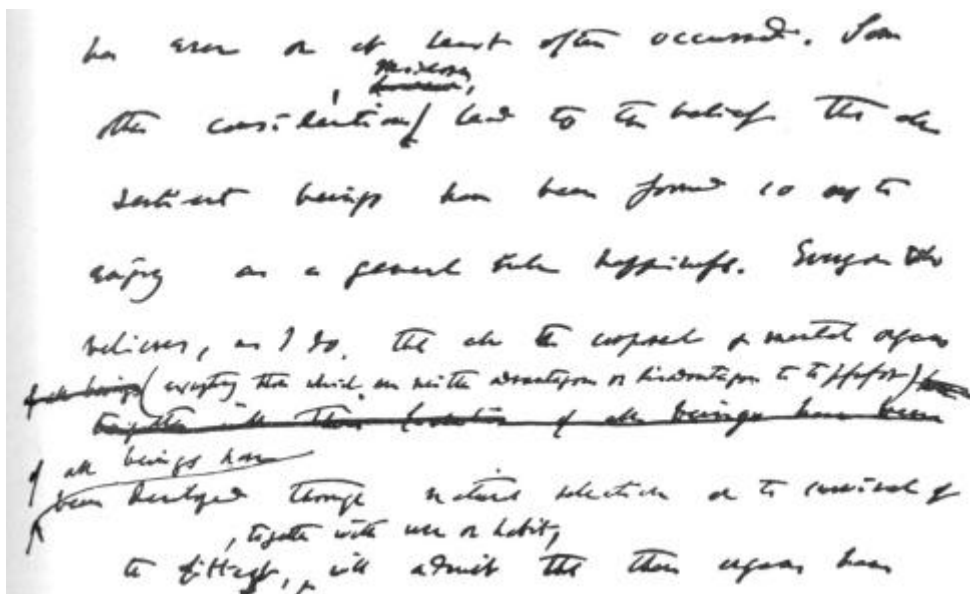 has ever or at least often occurred. Some
moreover,
other considerations, lead to the belief that all
sentient beings have been formed so as to
enjoy as a general rule happiness. Every one who
believes, as I do, that all the corporeal & mental organs
of all beings (excepting those which are neither advantageous or disadvantageous to the possessor)
together with their of all beings have been
of all beings have
been developed through natural selection or the survival of
, together with use or habit,
the fittest, will admit that these organs have